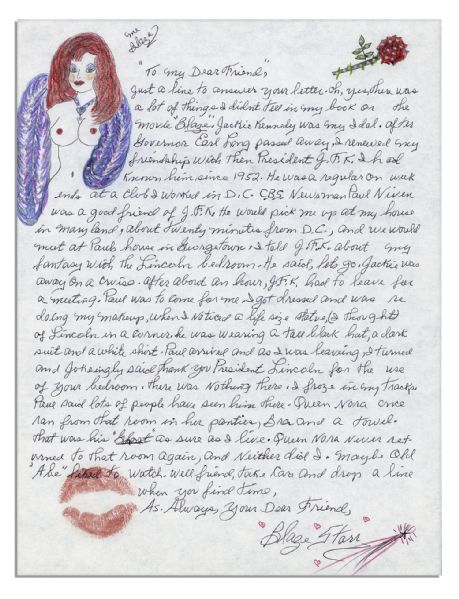 me
Blaze
"To my Dear Friend,"
Just a line to answer your letter. Oh, yes, there was
a lot of things I didn't tell in my book or the
movie "Blaze" Jackie Kennedy was my Idal. After
Governor Earl Long passed away, I renewed my
friendship with then President J.F.K. I had
known him since 1952. He was a regular on week
ends at a club I worked in D.C. CBS Newsman Paul Niven
was a good friend of J.F.K. He would pick me up at my house
in Maryland, about twenty minutes from D.C., and we would
meet at Pauls house in Georgetown. I told J.F.K. about my
fantasy with the Lincoln bedroom. He said, lets go. Jackie was
away on a cruise. After about an hour, J.F.K. had to leave for
a meeting. Paul was to come for me. I got dressed and was re
doing my makeup, when I noticed a life size statue, (I thought)
of Lincoln in a corner. he was wearing a tall black hat, a dark
suit and a white shirt. Paul arrived and as I was leaving, I turned
and Jokingly said thank you President Lincoln for the use
of your bedroom. there was nothing there. I froze in my tracks
Paul said lots of people have seen him there. Queen Nora once
ran from that room in her panties, Bra and a towel.
that was his Ghost as sure as I live. Queen Nora Never ret-
urned to that room again, and Neither did I. maybe Old
"Abe" liked to watch. Well friend, take care and drop a line
when you find time,
As. Always, Your Dear Friend,
Blaze Starr